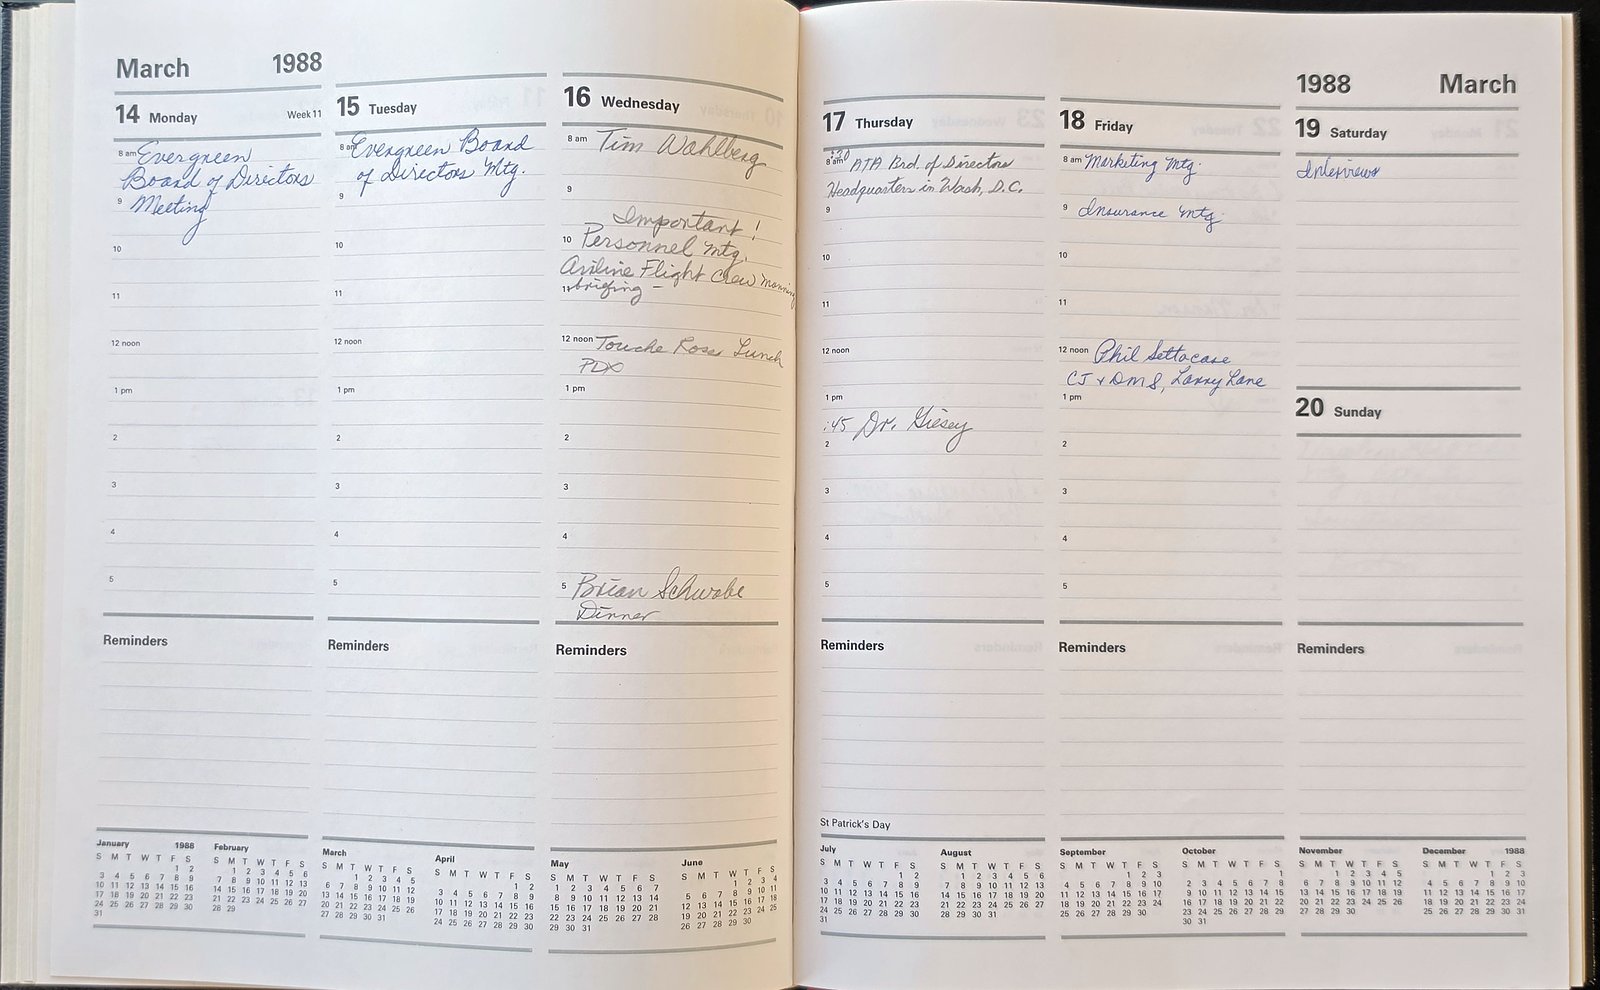 March 1988
14 Monday Week 11
8 am Evergreen
Board of Directors
9 Meeting
10
11
12 noon
1 pm
2
3
4
5
Reminders
15 Tuesday
8 am Evergreen Board
of Directors Mtg.
9
10
11
12 noon
1 pm
2
3
4
5
Reminders
16 Wednesday
8 am Tim Wahlberg
9
Important!
10 Personnel Mtg.
Airline Flight Crew manning
11 briefing –
12 noon Touche Ross Lunch
PDX
1 pm
2
3
4
5 Brian Schwabe
Dinner
Reminders
17 Thursday
:30
8 am ATA Brd. of Directors
Headquarters in Wash, D.C.
9
10
11
12 noon
1 pm
:45 Dr. Giesey
2
3
4
5
Reminders
St Patrick's Day
18 Friday
8 am Marketing Mtg.
9 Insurance Mtg.
10
11
12 noon Phil Settacase
CJ + DMS, Larry Lane
1 pm
2
3
4
5
Reminders
1988 March
19 Saturday
Interviews
20 Sunday
Reminders
January 1988
S M T W T F S
1 2
3 4 5 6 7 8 9
10 11 12 13 14 15 16
17 18 19 20 21 22 23
24 25 26 27 28 29 30
31
February
S M T W T F S
1 2 3 4 5 6
7 8 9 10 11 12 13
14 15 16 17 18 19 20
21 22 23 24 25 26 27
28 29
March
S M T W T F S
1 2 3 4 5
6 7 8 9 10 11 12
13 14 15 16 17 18 19
20 21 22 23 24 25 26
27 28 29 30 31
April
S M T W T F S
1 2
3 4 5 6 7 8 9
10 11 12 13 14 15 16
17 18 19 20 21 22 23
24 25 26 27 28 29 30
May
S M T W T F S
1 2 3 4 5 6 7
8 9 10 11 12 13 14
15 16 17 18 19 20 21
22 23 24 25 26 27 28
29 30 31
June
S M T W T F S
1 2 3 4
5 6 7 8 9 10 11
12 13 14 15 16 17 18
19 20 21 22 23 24 25
26 27 28 29 30
July
S M T W T F S
1 2
3 4 5 6 7 8 9
10 11 12 13 14 15 16
17 18 19 20 21 22 23
24 25 26 27 28 29 30
31
August
S M T W T F S
1 2 3 4 5 6
7 8 9 10 11 12 13
14 15 16 17 18 19 20
21 22 23 24 25 26 27
28 29 30 31
September
S M T W T F S
1 2 3
4 5 6 7 8 9 10
11 12 13 14 15 16 17
18 19 20 21 22 23 24
25 26 27 28 29 30
October
S M T W T F S
1
2 3 4 5 6 7 8
9 10 11 12 13 14 15
16 17 18 19 20 21 22
23 24 25 26 27 28 29
30 31
November
S M T W T F S
1 2 3 4 5
6 7 8 9 10 11 12
13 14 15 16 17 18 19
20 21 22 23 24 25 26
27 28 29 30
December 1988
S M T W T F S
1 2 3
4 5 6 7 8 9 10
11 12 13 14 15 16 17
18 19 20 21 22 23 24
25 26 27 28 29 30 31